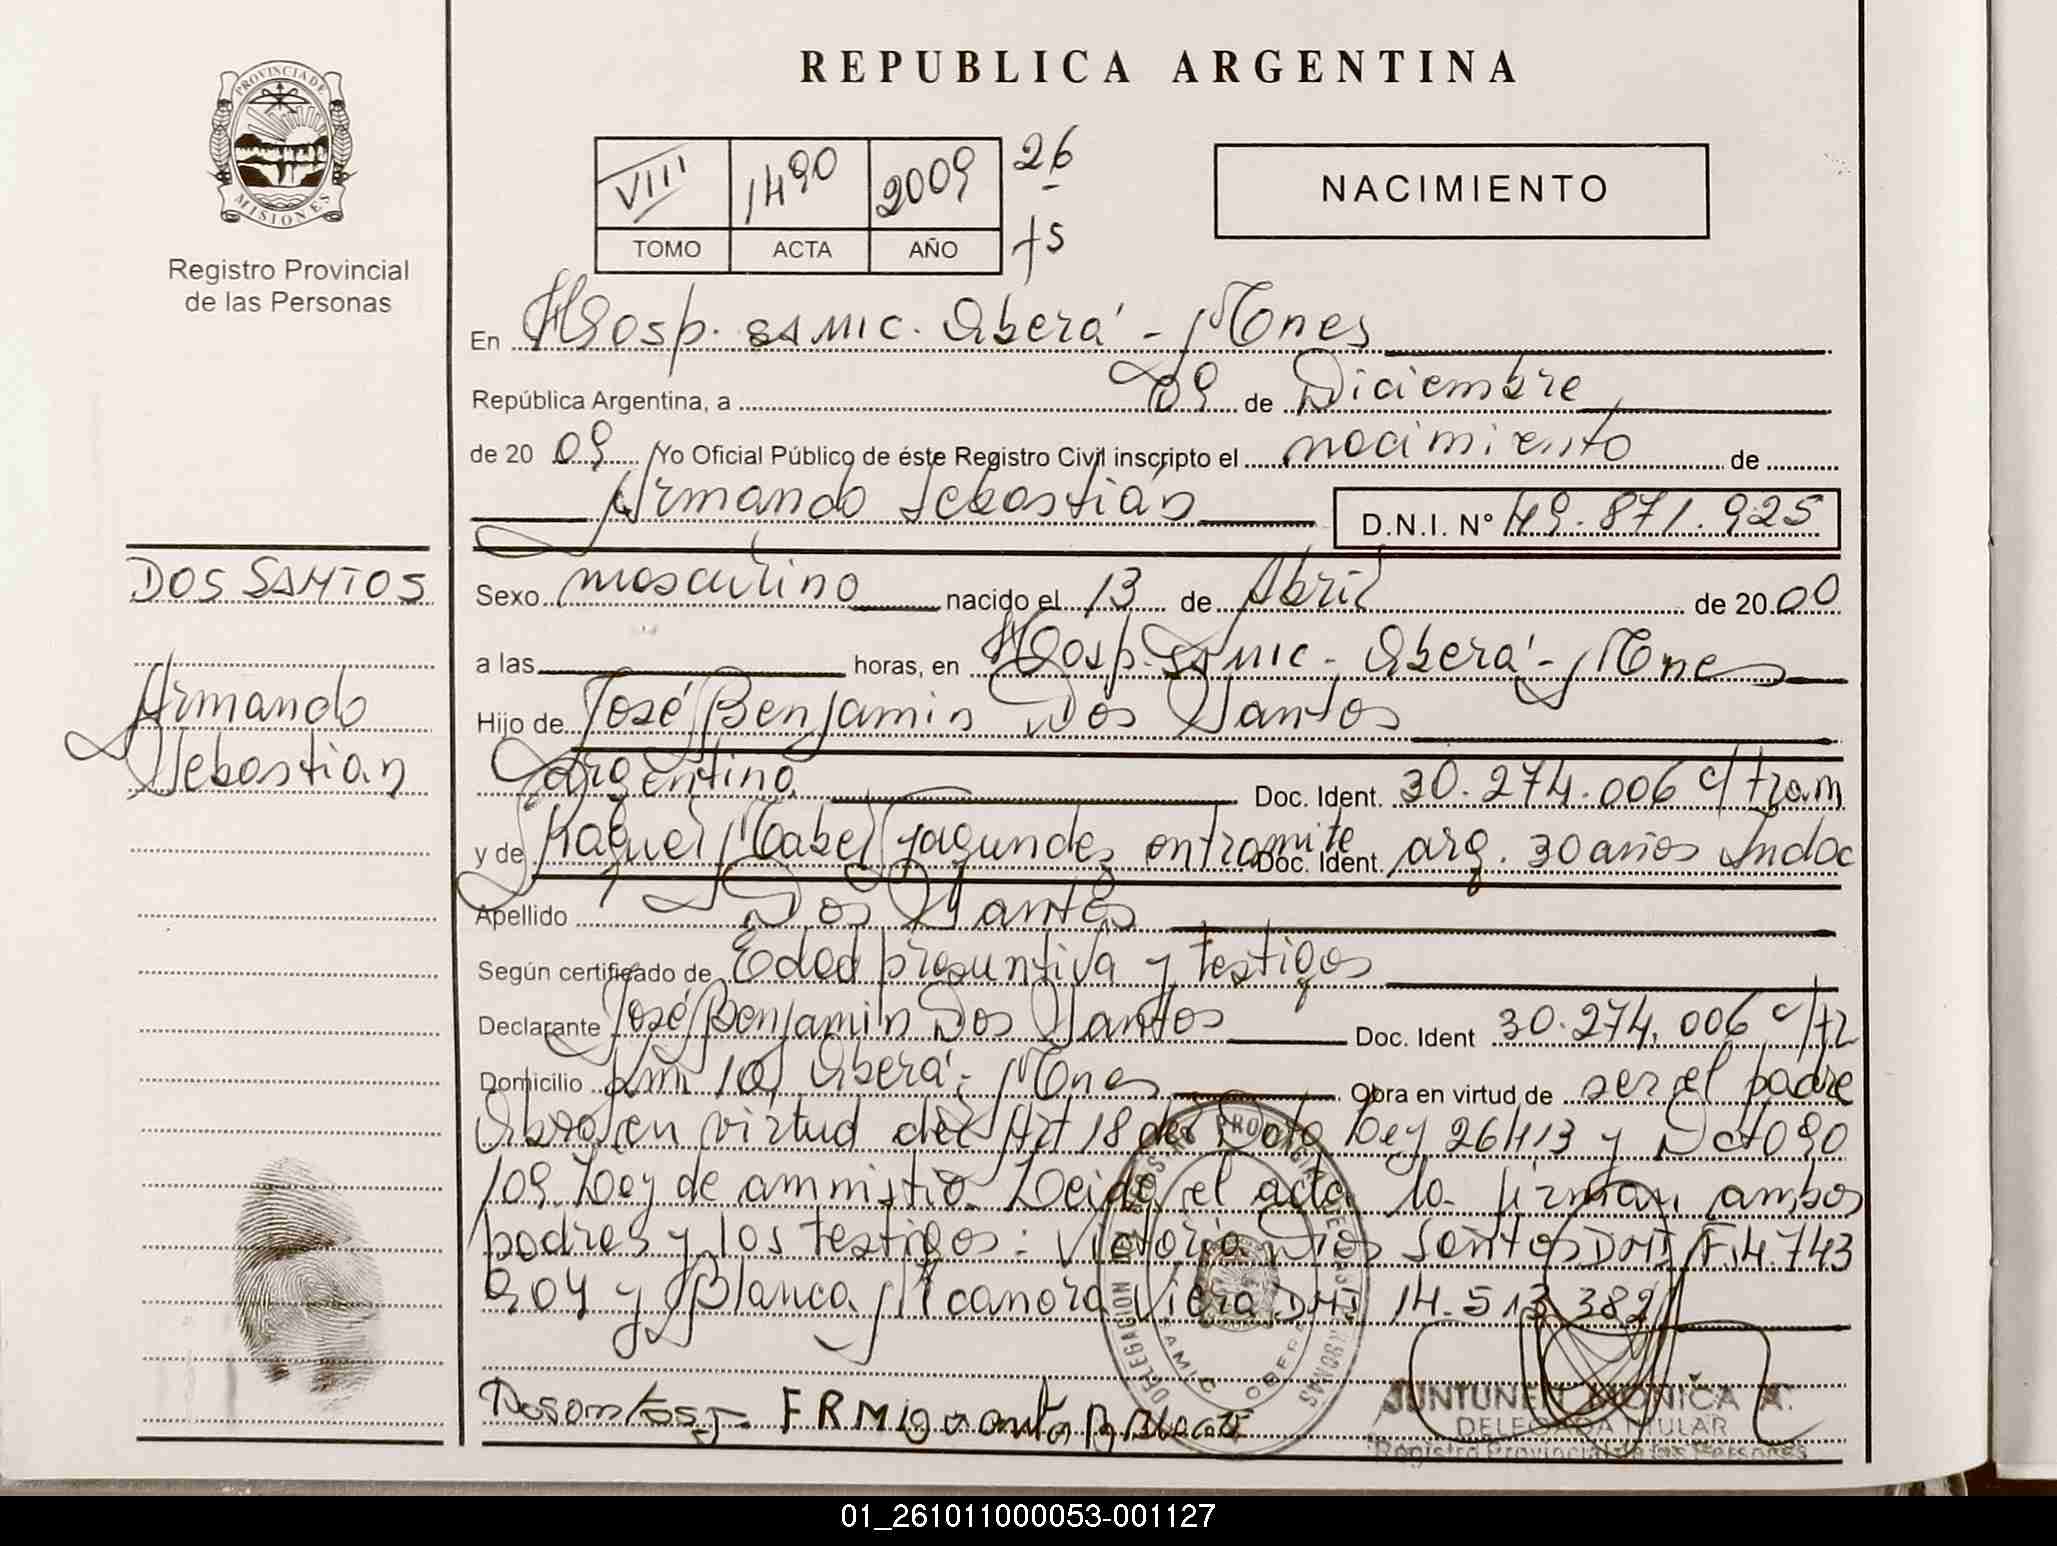 REPUBLICA ARGENTINA
PROVINCIA DE
MISIONES
Registro Provincial
de las Personas
VIII 1490 2009 26
TOMO ACTA AÑO fs
NACIMIENTO
En Hosp. SAMIC. Oberá - Mnes
República Argentina, a 09 de Diciembre
de 2009 Yo Oficial Público de éste Registro Civil inscripto el nacimiento de
Armando Sebastián D.N.I. N° 49.871.925
DOS SANTOS
Armando
Sebastián
Sexo masculino nacido el 13 de Abril de 2000
a las horas, en Hosp. SAMIC - Oberá - Mnes
Hijo de José Benjamin Dos Santos
argentino Doc. Ident. 30.274.006 c/tram
y de Raquel Mabel Fagundes entramite Doc. Ident. arg. 30 años Indoc
Apellido Dos Santos
Según certificado de Edad presuntiva y testigos
Declarante José Benjamin Dos Santos Doc. Ident 30.274.006 c/tr
Domicilio Km 10, Oberá - Mnes Obra en virtud de ser el padre
Obra en virtud del Art 18 del Dcto Ley 26413 y Dcto 90
/09 Ley de amnistia. Leida el acta la firman ambos
padres y los testigos: Victoria Dos Santos DNI F.4.743
904 y Blanca Nicanora Viera DNI 14.513.382
JUNTUNEN MONICA A.
DELEGADA TITULAR
Registro Provincial de las Personas
01_261011000053-001127